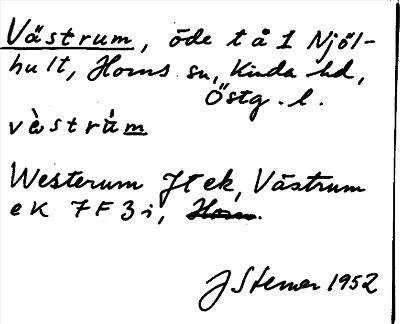 Västrum, öde t å 1 Njöl-
hult, Horns sn, Kinda hd,
Östg. l.
vèstrúm
Westerum Jt ek, Västrum
ek 7F3i, Horn.
J Stemer 1952